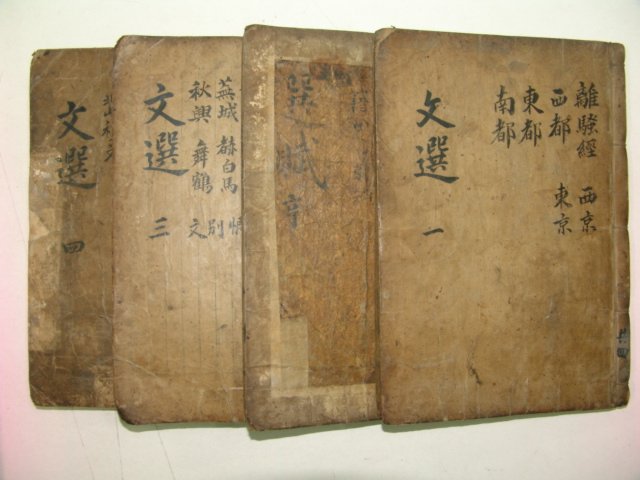 離騷經 西京
西都 東京
東都
南都
文選 一
共四
選賦 亨
蕪城 赭白馬 恨
秋興 舞鶴 文 別
文選 三
文選 四